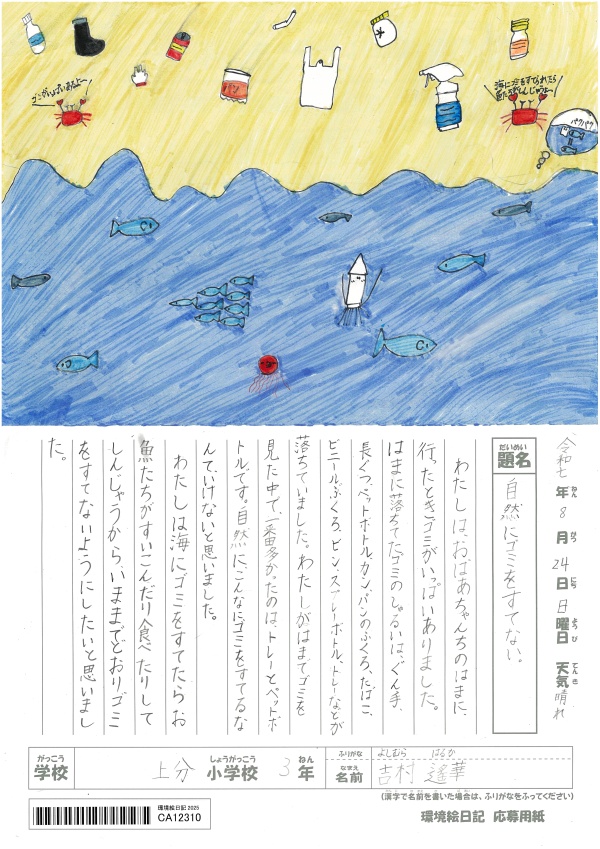 ゴミがいっぱいあるよ〜
パン
海にゴミをすてられたら
魚たちがしんじゃうよ〜
パクパク
令和七年8月24日日曜日 天気 晴れ
ねん がつ にち ようび てんき
だいめい
題名
自然にゴミをすてない。
わたしは、おばあちゃんちのはまに、
行ったときゴミがいっぱいありました。
はまに落ちてたゴミのしゅるいは、ぐん手、
長ぐつ、ペットボトル、カン、パンのふくろ、たばこ、
ビニールぶくろ、ビン、スプレーボトル、トレーなどが
落ちていました。わたしがはまでゴミを
見た中で、一番多かったのは、トレーとペットボ
トルです。自然に、こんなにゴミをすてるな
んて、いけないと思いました。
わたしは海にゴミをすてたらお
魚たちがすいこんだり食べたりして
しんじゃうから、いままでどおりゴミ
をすてないようにしたいと思いまし
た。
がっこう
学校
上分
しょうがっこう
小学校
3
ねん
年
ふりがな
よしむら はるか
なまえ
名前
吉村 遥華
(漢字で名前を書いた場合は、ふりがなをふってください)
環境絵日記 2025
CA12310
環境絵日記 応募用紙